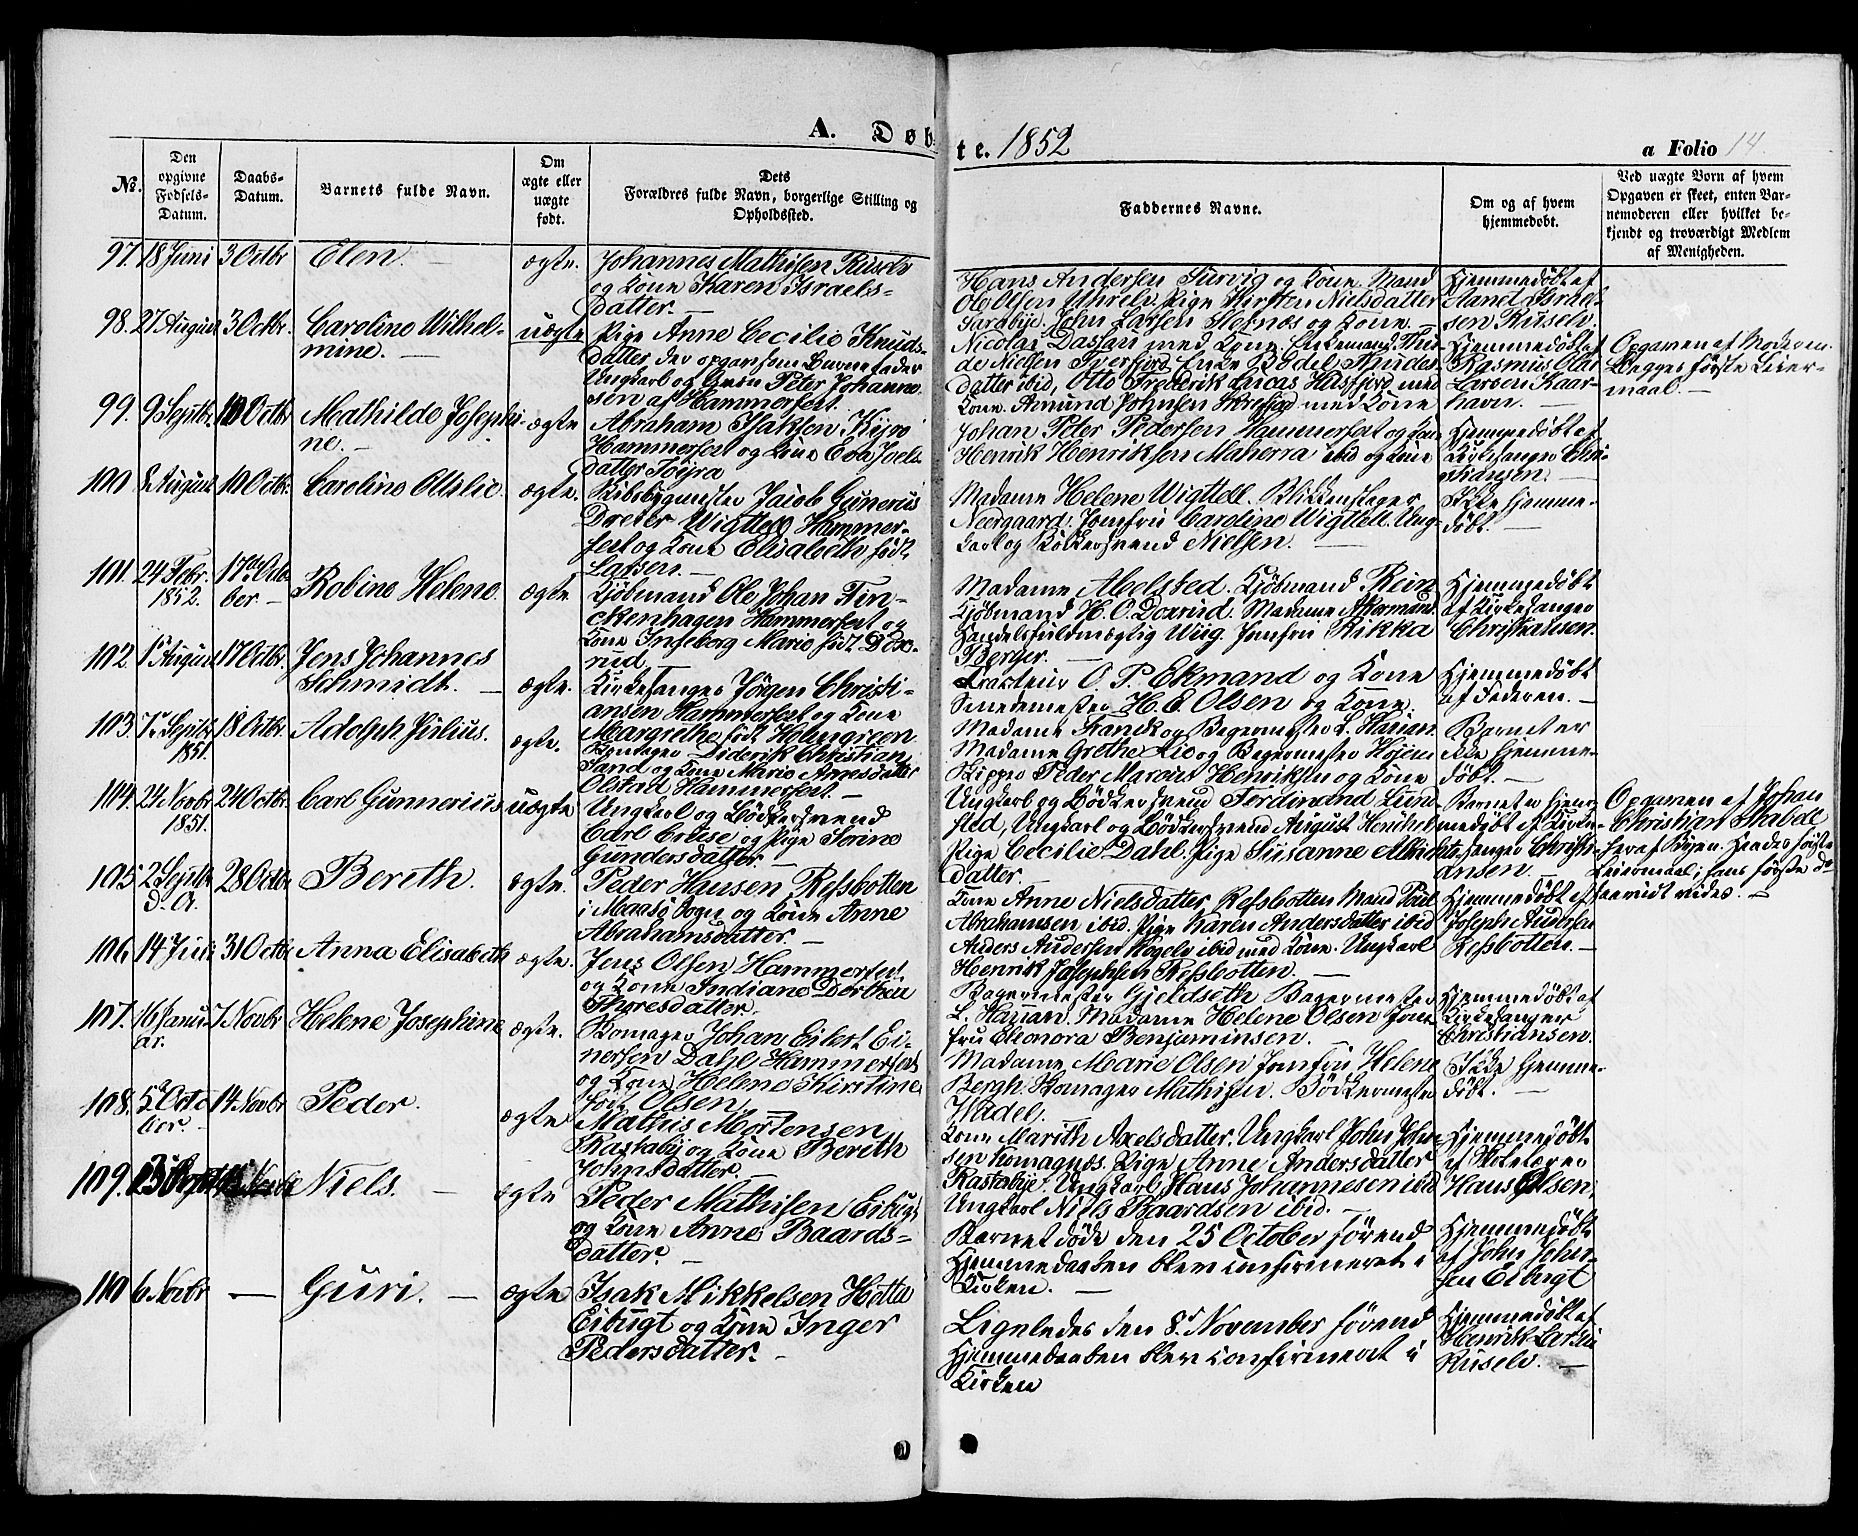 A. Døb-
te. 1852
a Folio 14.
No.
Den opgivne Fødsels-Datum.
Daabs-Datum.
Barnets fulde Navn.
Om ægte eller uægte født.
Dets Forældres fulde Navn, borgerlige Stilling og Opholdssted.
Faddernes Navne.
Om og af hvem hjemmedøbt.
Ved uægte Born af hvem Opgaven er skeet, enten Barnemoderen eller hvilket bekjendt og troværdigt Medlem af Menigheden.
97. 18 Juni 3 Octbr Elen. — ægte.
Johannes Mathisen Russelv
og Kone Karen Israels-
datter. —
Hans Andersen og Kone. Mand
Ole Olsen Pige Kirsten Nielsdatter
John Larsen og Kone.
Hjemmedøbt af
Israel-
sen Russelv
98. 27 August 3 Octbr. Caroline Wilhel-
mine. —
uægte
Pige Anne Cecilie Knuds-
datter der opgav som Barnefader
Ungkarl og Peter Johanne-
sen af Hammerfest.
Nicolai med Kone. Enkemand Knu-
de Nielsen Enke Bodel Knuds-
datter ibid, Otto Frederik Lucas med
Kone. Amund Johnsen med Kone
Hjemmedøbt af
Rasmus Olai
Larsen Kaar-
havn. —
Opgaven af Moderen.
Begges første Leier-
maal. —
99. 9 Septbr. 10 Octbr. Mathilde Josephi-
ne. —
ægte
Abraham Isaksen
Hammerfest og Kone Eva Joels-
datter
Johan Peter Pedersen Hammerfest og Kone
Henrik Henriksen ibid og Kone
Hjemmedøbt af
Kirkesanger Chri-
stiansen.
100 8 August 10 Octbr. Caroline Ottilie. ægte.
Jacob Gunerius
Wigttell Hammer-
fest og Kone Elisabeth født
Larsen. —
Madame Helene Wigttell. Blikkenslager
Neergaard. Jomfru Caroline Wigttell. Ung-
karl og Bødkersvend Nielsen. —
Ikke hjemme-
døbt. —
101. 24 Febr.
1852.
17de Octo-
ber. —
Robine Helene. ægte
Kjøbmand Ole Johan Fin-
ckenhagen Hammerfest og
Kone Ingeborg Marie født Dox-
rud.
Madame Abelsted. Kjøbmand Rein
Kjøbmand H. O. Doxrud. Madame Akermand.
Handelsfuldmægtig Wiig. Jomfru Rikka
Berger. —
Hjemmedøbt
af Kirkesanger
Christiansen.
102 1 August 17 Octbr. Jens Johannes
Schmidt. —
ægte.
Kirkesanger Jørgen Christi-
ansen Hammerfest og Kone
Margrethe født Holmgreen
Tracteur O. P. Ekmand og Kone
Smedemester H. E. Olsen og Kone.
Hjemmedøbt
af Faderen. —
103. 7 Septbr
1851.
18 Octbr. Adolph Julius. ægte.
Diderik Christian
Sand og Kone Marie Arnesdatter
Olstad Hammerfest. —
Madame Franck og Bagermester L. Harjan.
Madame Grethe Lie og Bagermester
Skipper Peder Marcus Henriksen og Kone
Barnet er
ikke hjemme-
døbt. —
104. 24 Novbr
1851.
24 Octbr. Carl Gunnerius uægte
Ungkarl og Bødkersvend
Carl Cruse og Pige Serine
Gundersdatter —
Ungkarl og Bødkersvend Ferdinand Lund-
sted, Ungkarl og Bødkersvend August
Pige Cecilie Dahl. Pige Susanne
datter.
Barnet er hjem-
medøbt af Kirke-
sanger Christi-
ansen. —
Opgaven af Johan
Christian
her af Byen. Hendes første
Leiermaal; hans første do
saavidt vides. —
105 2 Septbr
d. A.
28 Octbr Bereth. ægte.
Peder Hansen Refsbotten
i Maasø Sogn og Kone Anne
Abrahamsdatter. —
Kone Anne Nielsdatter Refsbotten Mand Poul
Abrahamsen ibid. Pige Karen Andersdatter ibid
Anders Andersen ibid med Kone. Ungkarl
Henrik Josephsen Refsbotten. —
Hjemmedøbt af
Joseph Andersen
Refsbotten. —
106. 14 Juli 31 Octbr Anna Elisabeth ægte.
Jens Olsen Hammerfest
og Kone Indiane Dorthea
Thoresdatter.
Bagermester Gjeldseth Bagermester
L. Harjan. Madame Helene Olsen Jom-
fru Eleonora Benjaminsen.
Hjemmedøbt af
Kirkesanger
Christiansen.
107. 16 Janu-
ar.
7 Novbr Helene Josephine ægte.
Skomager Johan Eilert Ei-
nersen Dahl, Hammerfest
og Kone Helene Kirstine
født Olsen.
Madame Marie Olsen Jomfru Helene
Bergh. Skomager Mathisen. Bødkermester
Wadel.
Ikke hjemme-
døbt. —
108. 5 Octo-
ber. —
14 Novbr Peder. ægte
Mathis Mortensen
Rastabÿ og Kone Bereth
Johnsdatter. —
Kone Marith Axelsdatter. Ungkarl John John-
sen Komagnæs. Pige Anne Andersdatter
Rastabye. Ungkarl Hans Johannesen ibid
Ungkarl Niels Baardsen ibid. —
Hjemmedøbt
af Skolelærer
Hans Olsen.
109. Niels. — ægte
Peder Mathisen Eibugt
og Kone Anne Baards-
datter. —
Barnet døde den 25 October førend
Hjemmedaaben blev confirmeret i
Kirken. —
Hjemmedøbt
af John John-
sen Eibugt
110 6 Novbr — Guri. — ægte
Isak Mikkelsen Hotta
Eibugt og Kone Inger
Pedersdatter. —
Ligeledes den 8 November førend
Hjemmedaaben blev confirmeret i
Kirken
Hjemmedøbt af
Henrik Larsen
Russelv. —